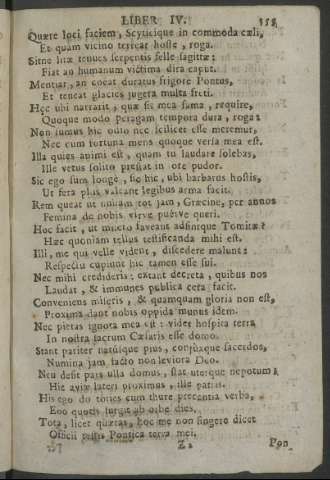 LIBER IV. 355
Quære loci faciem, Scythicique incommoda cæli,
Et quam vicino terrear hoste, roga.
Sitne litæ tenues serpentis felle sagittæ:
Fiat an humanum victima dira caput.
Mentiar, an coeat duratus frigore Pontus,
Et teneat glacies jugera multa freti.
Hæc ubi narrarit, quæ sit mea fama, require,
Quoque modo peragam tempora dura, roga:
Non sumus hic odio nec scilicet esse meremur,
Nec cum fortuna mens quoque versa mea est.
Illa quies animi est, quam tu laudare solebas,
Ille vetus solito prestat in ore pudor.
Sic ego sum longe, sic hic, ubi barbarus hostis,
Ut fera plus valeant legibus arma facit.
Rem queat ut nullam tot jam, Græcine, per annos
Femina de nobis virve puerve queri.
Hoc facit, ut misero faveant adsintque Tomitæ:
Hæc quoniam tellus testificanda mihi est.
Illi, me qui velle vident, discedere malunt:
Respectu cupiunt hic tamen esse sui.
Nec mihi credideris: extant decreta, quibus nos
Laudat, & immunes publica cera facit.
Conveniens miseris, & quamquam gloria non est,
Proxima dant nobis oppida munus idem.
Nec pietas ignota mea est: videt hospita terra
In nostra sacrum Cæsaris esse domo.
Stant pariter natusque pius, conjuxque sacerdos,
Numina jam facto non leviora Deo.
Neu desit pars ulla domus, stat uterque nepotum
Hic aviæ lateri proximus, ille patris.
His ego do toties cum thure precantia verba,
Eoo quoties surgit ab orbe dies.
Tota, licet quæras, hoc me non fingere dicet
Officii testis Pontica terra mei.
Z 2 Pon